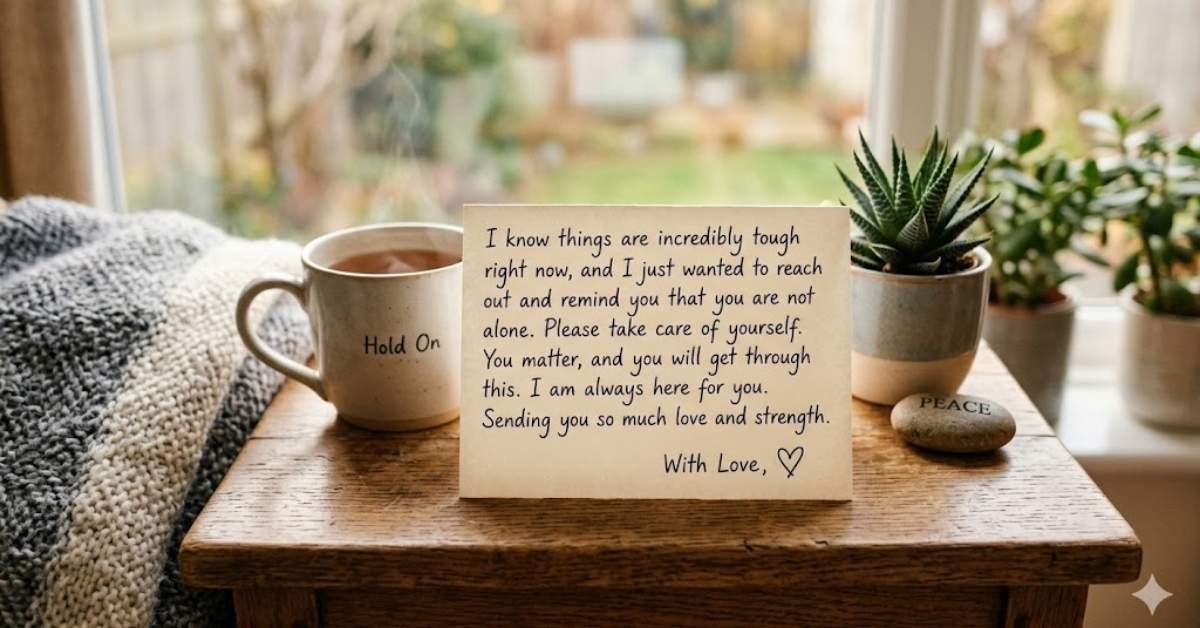 Hold On
I know things are incredibly tough
right now, and I just wanted to reach
out and remind you that you are not
alone. Please take care of yourself.
You matter, and you will get through
this. I am always here for you.
Sending you so much love and strength.
With Love, ♡
PEACE